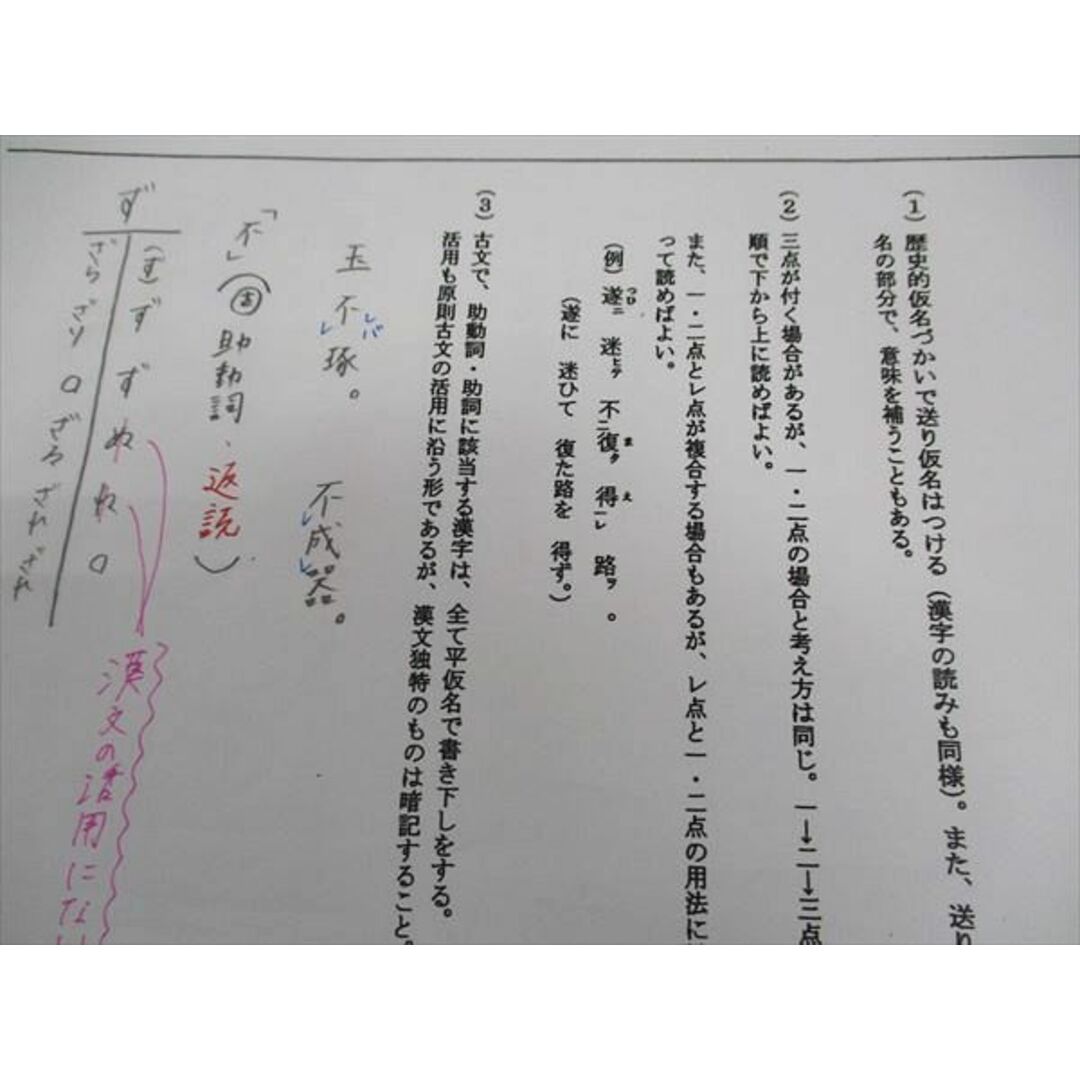 (1) 歴史的仮名づかいで送り仮名はつける(漢字の読みも同様)。また、送り
名の部分で、意味を補うこともある。
(2) 三点が付く場合があるが、一・二点の場合と考え方は同じ。一→二→三点
順で下から上に読めばよい。
また、一・二点とレ点が複合する場合もあるが、レ点と一・二点の用法に
って読めばよい。
(例) 遂ニ 迷ヒテ 不二 復タ 得一レ 路ヲ 。
つひ ま え
(遂に 迷ひて 復た路を 得ず。)
(3) 古文で、助動詞・助詞に該当する漢字は、全て平仮名で書き下しをする。
活用も原則古文の活用に沿う形であるが、漢文独特のものは暗記すること。
玉不レ琢レバ。 不レ成レ器。
「不」(古 助動詞・返読)
ず
(ず) ず ず ぬ ね 〇
ざら ざり 〇 ざる ざれ ざれ
漢文の活用にない